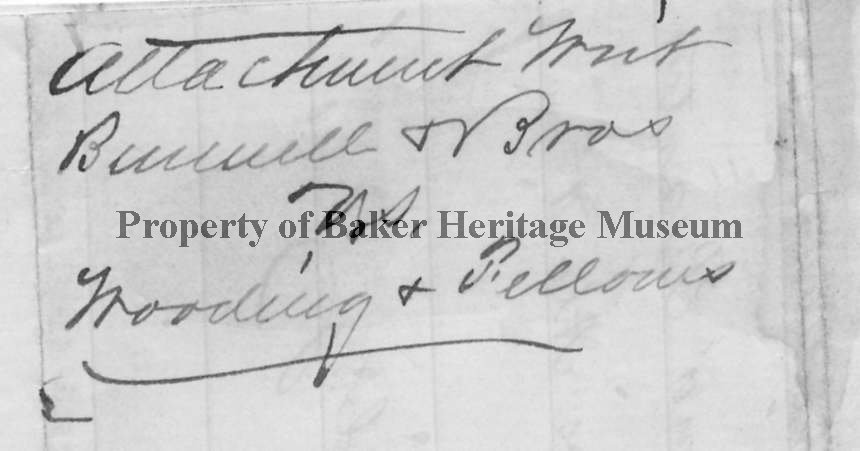 Attachment Writ
Bunnell & Bros
Vs.
Property of Baker Heritage Museum
Wooding & Fellows